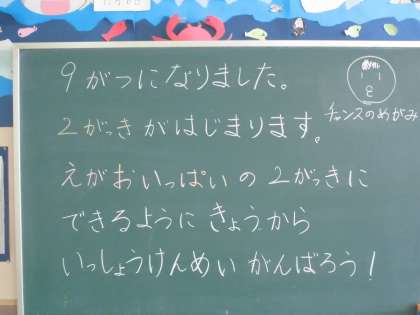 9がつになりました。
2がっきがはじまります。
えがおいっぱいの2がっきに
できるようにきょうから
いっしょうけんめいがんばろう!
チャンスのめがみ